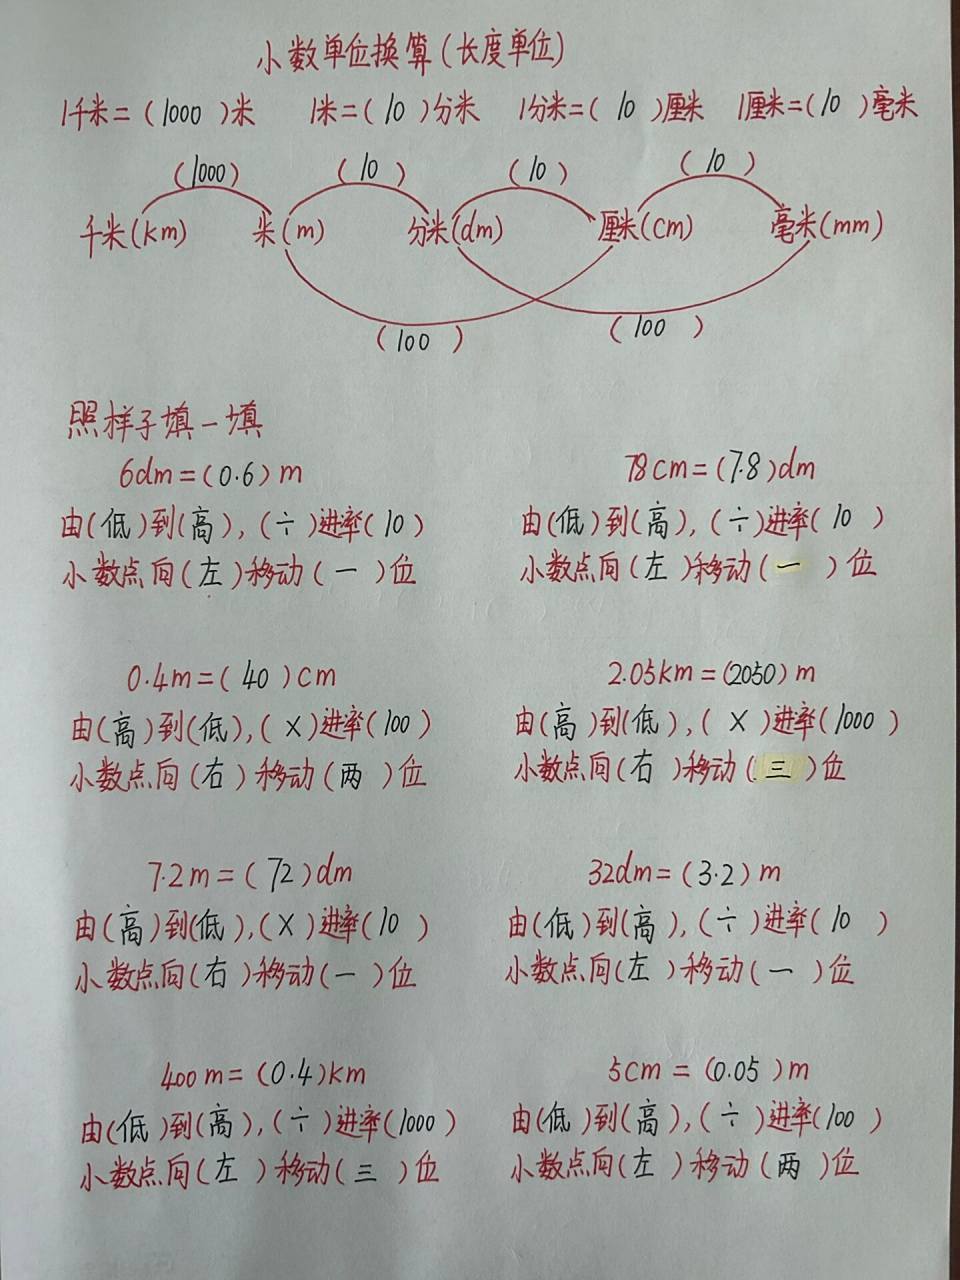 小数单位换算(长度单位)
1千米=(1000)米 1米=(10)分米 1分米=(10)厘米 1厘米=(10)毫米
(1000) (10) (10) (10)
千米(km) 米(m) 分米(dm) 厘米(cm) 毫米(mm)
(100) (100)
照样子填一填
6dm=(0.6)m
由(低)到(高),(÷)进率(10)
小数点向(左)移动(一)位
78cm=(7.8)dm
由(低)到(高),(÷)进率(10)
小数点向(左)移动(一)位
0.4m=(40)cm
由(高)到(低),(×)进率(100)
小数点向(右)移动(两)位
2.05km=(2050)m
由(高)到(低),(×)进率(1000)
小数点向(右)移动(三)位
7.2m=(72)dm
由(高)到(低),(×)进率(10)
小数点向(右)移动(一)位
32dm=(3.2)m
由(低)到(高),(÷)进率(10)
小数点向(左)移动(一)位
400m=(0.4)km
由(低)到(高),(÷)进率(1000)
小数点向(左)移动(三)位
5cm=(0.05)m
由(低)到(高),(÷)进率(100)
小数点向(左)移动(两)位